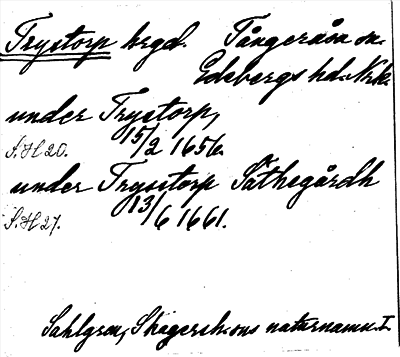 Trystorp hrgd. Tångeråsa sn.
Edsbergs hd. Nrk.
under Trystorp,
S.H 20. 15/2 1656.
under Trysstorp Säthegårdh
S.H 27. 13/6 1661.
Sahlgren, Skagersh:ons naturnamn I